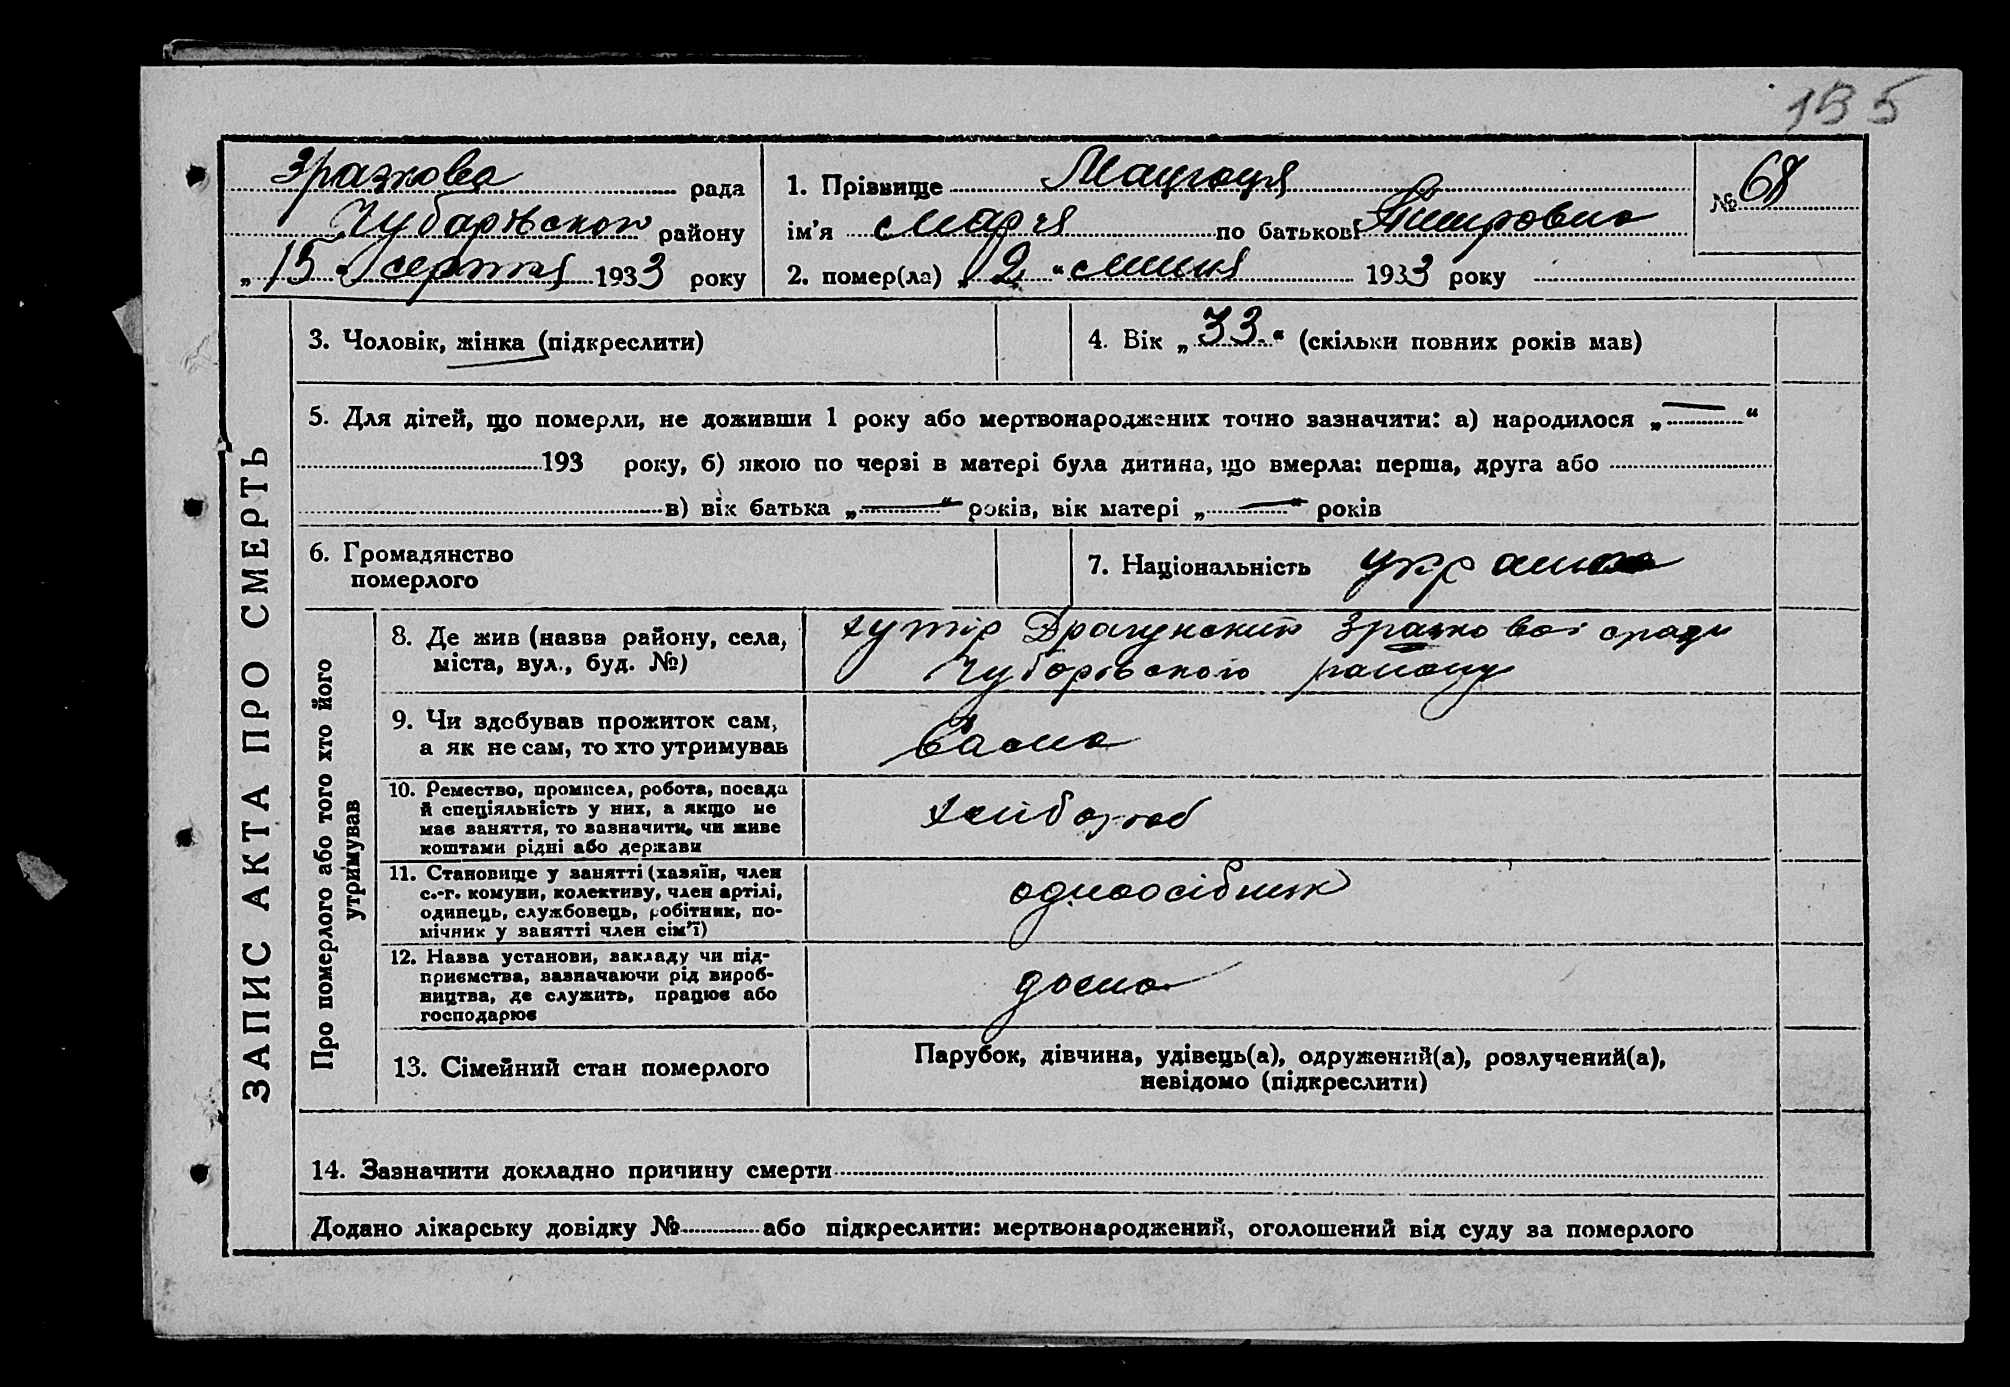 195
Зразкова рада
Чубарівського району
„15“ серпня 1933 року
1. Прізвище
ім’я Марія по батькові
2. помер(ла) „12“ липня 1933 року
№ 68
ЗАПИС АКТА ПРО СМЕРТЬ
3. Чоловік, жінка (підкреслити)
4. Вік „33“ (скільки повних років мав)
5. Для дітей, що померли, не доживши 1 року або мертвонароджених точно зазначити: а) народилося „—“
193 року, б) якою по черзі в матері була дитина, що вмерла: перша, друга або
в) вік батька „—“ років, вік матері „—“ років
6. Громадянство
померлого
7. Національність
Про померлого або того хто його
утримував
8. Де жив (назва району, села,
міста, вул., буд. №)
хутір Драгунский Зразковоі сради
Чубарівського району
9. Чи здобував прожиток сам,
а як не сам, то хто утримував
10. Ремество, промисел, робота, посада
й спеціяльність у них, а якщо не
має заняття, то зазначити, чи живе
коштами рідні або держави
хлібороб
11. Становище у занятті (хазяїн, член
с.-г. комуни, колективу, член артілі,
одинець, службовець, робітник, по-
мічник у занятті член сім’ї)
одноосібник
12. Назва установи, закладу чи під-
приємства, зазначаючи рід вироб-
ництва, де служить, працює або
господарює
13. Сімейний стан померлого
Парубок, дівчина, удівець(а), одружений(а), розлучений(а),
невідомо (підкреслити)
14. Зазначити докладно причину смерти
Додано лікарську довідку № або підкреслити: мертвонароджений, оголошений від суду за померлого